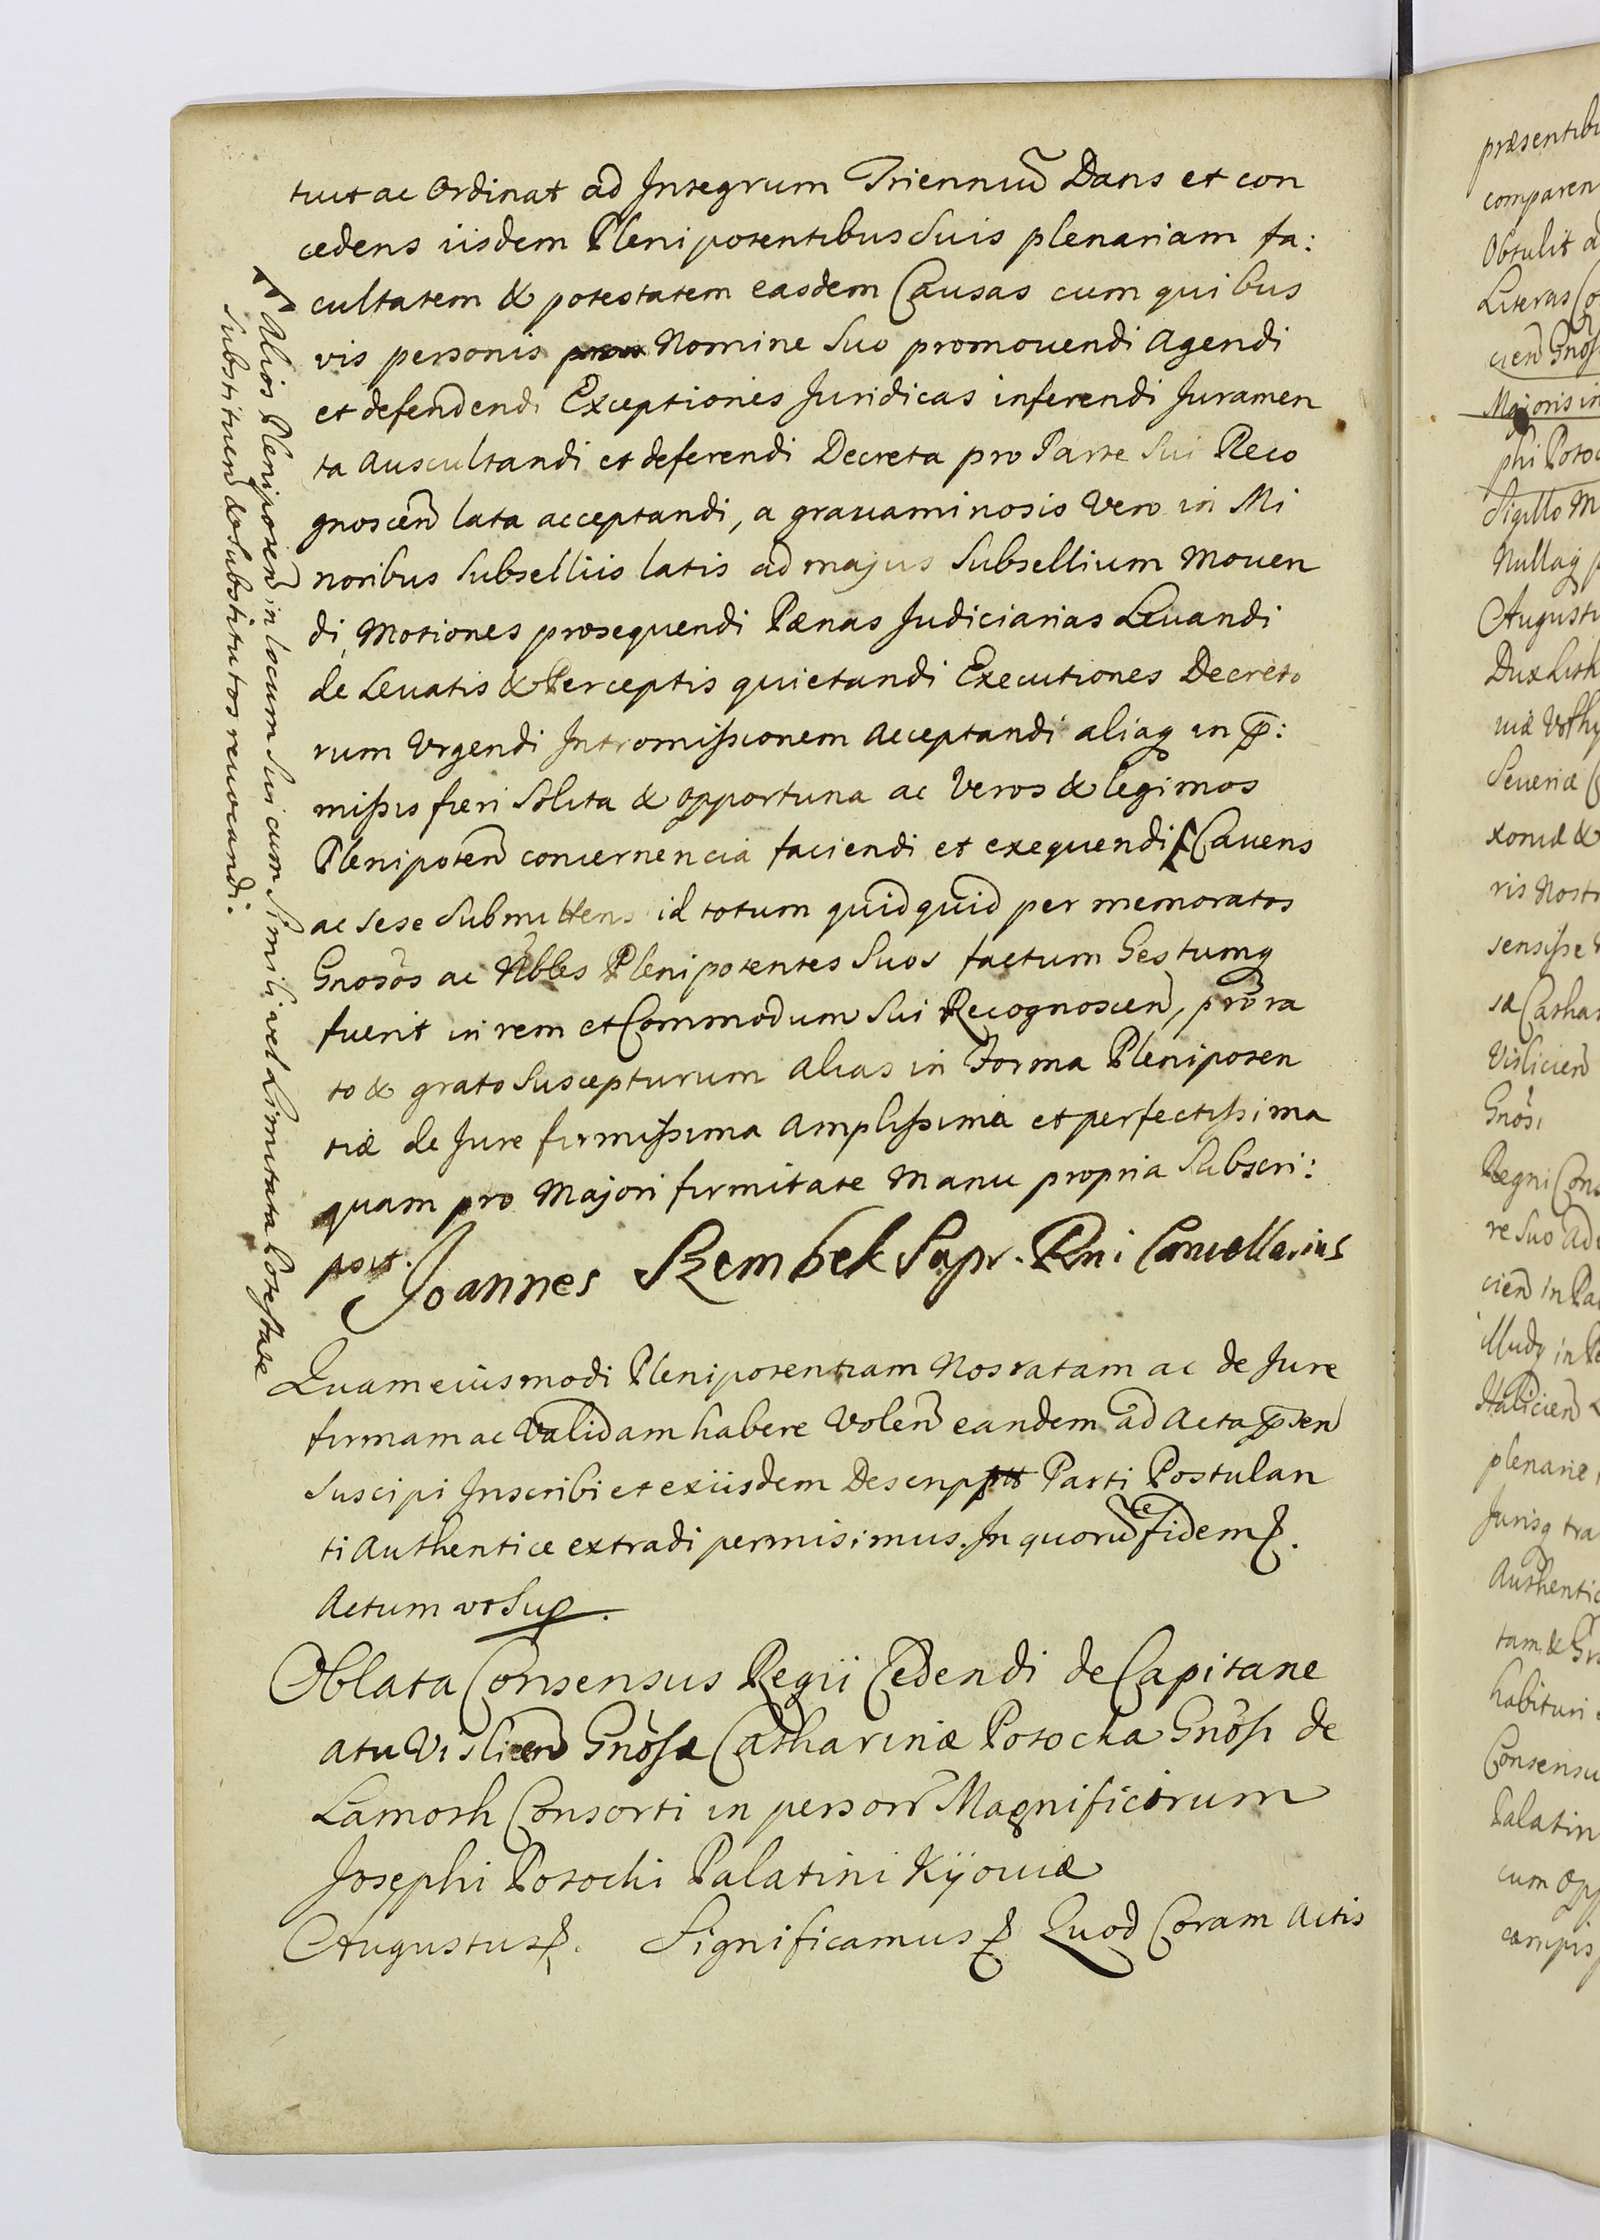 tuit ac Ordinat ad Integrum Trienniũ Dans et con
cedens iisdem Plenipotentibus Suis plenariam fa:
cultatem & potestatem easdem Causas cum quibus
vis personis Nomine Suo promovendi Agendi
et defendendi Exceptiones Juridicas inferendi Juramen
ta Auscultandi et deferendi Decreta pro Parte Sui Reco
gnosceñ lata acceptandi, a gravaminosis Vero in Mi
noribus Subselliis latis ad majus Subsellium Moven
di Motiones prosequendi Pænas Judiciarias Levandi
de Levatis & Perceptis quietandi Executiones Decreto
rum Urgendi Intromissionem Acceptandi aliaq in p̃:
missis fieri Solita & opportuna ac Veros & legimos
Plenipoteñ concernencia faciendi et exequendi Cavens
ac sese Submittens id totum quidquid per memoratos
Gnosõs ac Nbles Plenipotentes Suos factum Gestumq
fuerit in rem et Commodum Sui Recognosceñ, pro ra
to & grato Suscepturum Alias in Forma Plenipoten
tiæ de Jure firmissima Amplissima et perfectissima
quam pro Majori firmitate Manu propria Subscri:
psit. Joannes Szembek Supr. Rni Cancellarius
Alios Plenipoteñ in locum Sui cum Simili vel Limitata Potestate
Substitueñ & Substitutos revocandi.
Quam eiusmodi Plenipotentiam Nos ratam ac de Jure
firmam ac Validam habere Voleñ eandem ad Acta p̃señ
Suscipi Inscribi et ex iisdem Descriptt Parti Postulan
ti Authentice extradi permisimus. In quorũ fidem &.
Actum ut Sup.
Oblata Consensus Regii Cedendi de Capitane
atu Vislicen Gnõsæ Catharinæ Potocka Gnõsi de
Lamosh Consorti in persoñ Magnificorum
Josephi Potocki Palatini Kijoviæ
Augustus &. Significamus & Quod Coram Actis
præsentibu
comparen
Obtulit a
Literas Co
cien Gnõs
Majoris in
phi Potoc
Sigillo M
Nullaq p
Augustu
Dux Lith
viæ Volhy
Severiæ
xoniæ &
ris Nostr
sensisse
sæ Cathar
Vislicien
Gnõsi
Regni Cons
re Suo adv
cien in Pa
illudq in Pe
Halicien
plenarie
Jurisq tra
Authentic
tam & Gra
habituri
Consensu
Palatin
cum opp
campis